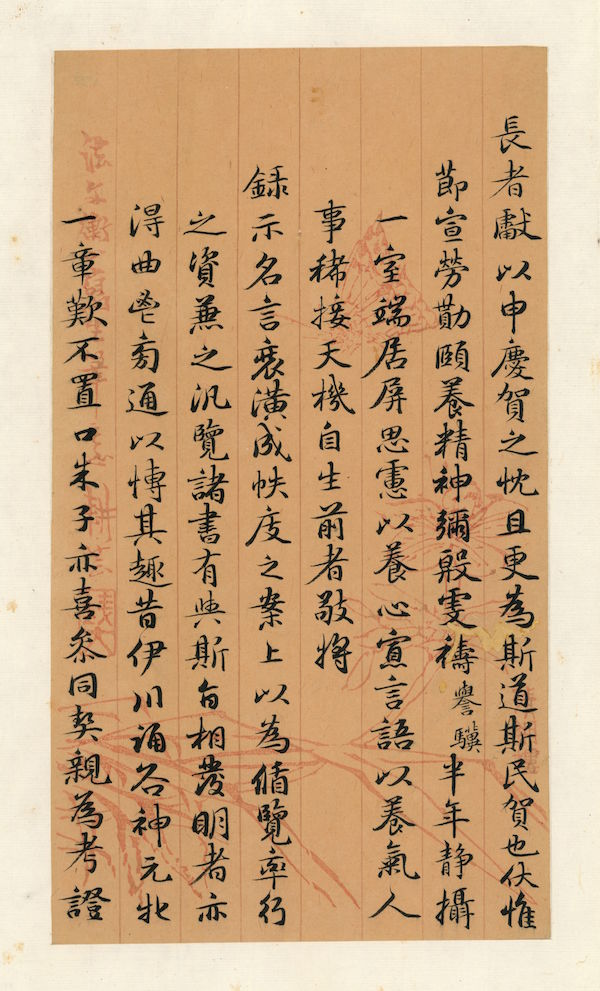 長者獻以申慶賀之忱且更為斯道斯民賀也伏惟
節宣勞勩頤養精神彌殷雯禱譽驥半年靜攝
一室端居屏思慮以養心寡言語以養氣人
事稀接天機自生前者敬將
錄示名言裒潢成帙庋之案上以為循覽率行
之資兼之汎覽諸書有與斯旨相發明者亦
得曲鬯旁通以博其趣昔伊川誦谷神元牝
一章歎不置口朱子亦喜參同契親為考證